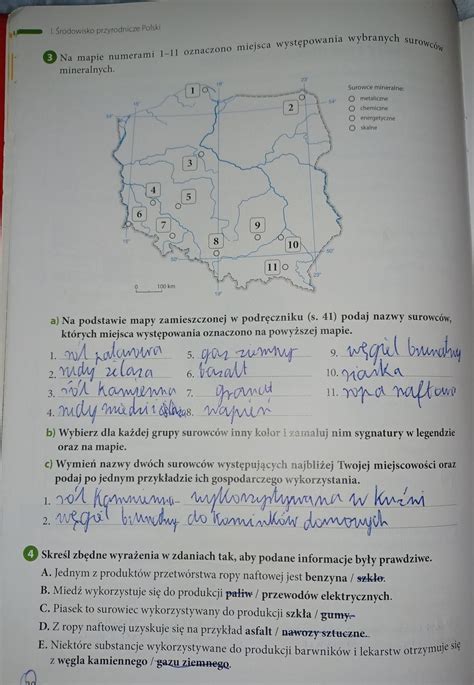 I. Środowisko przyrodnicze Polski
3 Na mapie numerami 1–11 oznaczono miejsca występowania wybranych surowców
mineralnych.
Surowce mineralne:
metaliczne
chemiczne
energetyczne
skalne
1
2
3
4
5
6
7
8
9
10
11
0 100 km
a) Na podstawie mapy zamieszczonej w podręczniku (s. 41) podaj nazwy surowców,
których miejsca występowania oznaczono na powyższej mapie.
1. sól potasowa 5. gaz ziemny 9. węgiel brunatny
2. rudy żelaza 6. bazalt 10. siarka
3. sól kamienna 7. granit 11. ropa naftowa
4. rudy miedzi i 8. wapień
b) Wybierz dla każdej grupy surowców inny kolor i zamaluj nim sygnatury w legendzie
oraz na mapie.
c) Wymień nazwy dwóch surowców występujących najbliżej Twojej miejscowości oraz
podaj po jednym przykładzie ich gospodarczego wykorzystania.
1. sól kamienna wykorzystywana w
2. węgiel brunatny do kominków domowych
4 Skreśl zbędne wyrażenia w zdaniach tak, aby podane informacje były prawdziwe.
A. Jednym z produktów przetwórstwa ropy naftowej jest benzyna / szkło.
B. Miedź wykorzystuje się do produkcji paliw / przewodów elektrycznych.
C. Piasek to surowiec wykorzystywany do produkcji szkła / gumy.
D. Z ropy naftowej uzyskuje się na przykład asfalt / nawozy sztuczne.
E. Niektóre substancje wykorzystywane do produkcji barwników i lekarstw otrzymuje się
z węgla kamiennego / gazu ziemnego.